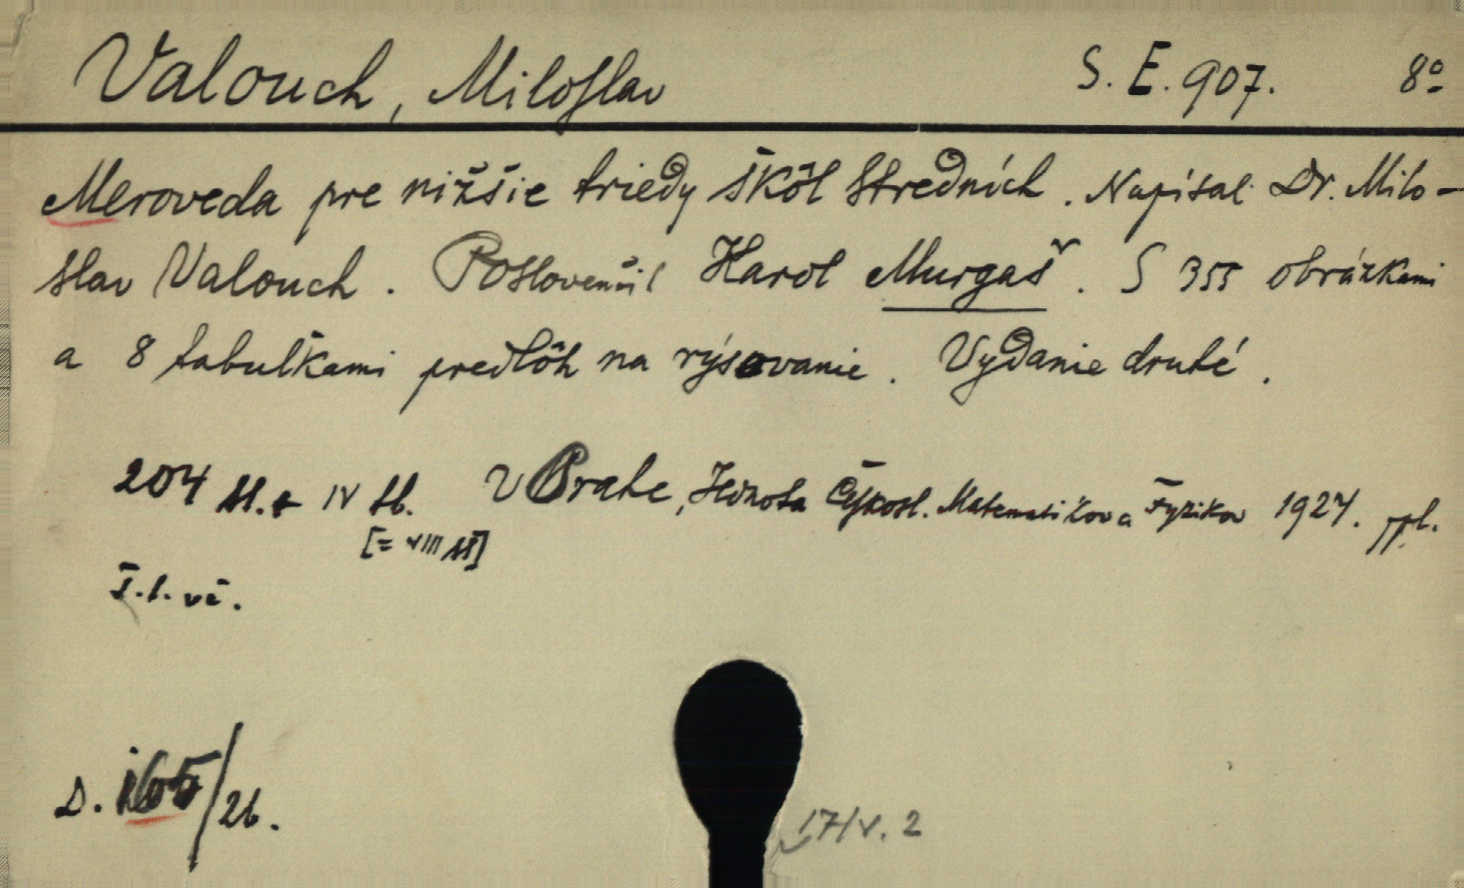 Valouch, Miloslav S. E. 907. 8º
Meroveda pre nižšie triedy škôl stredních. Napísal Dr. Milo-
slav Valouch. Poslovenčil Karol Murgaš. S 355 obrázkami
a 8 tabuľkami predlôh na rýsovanie. Vydanie druhé.
204 str. + IV tb. V Prahe, Jednota Čsl. Matematikov a Fyzikov 1924. ppl.
[= VIII str]
D. 165/26.
17/V. 2